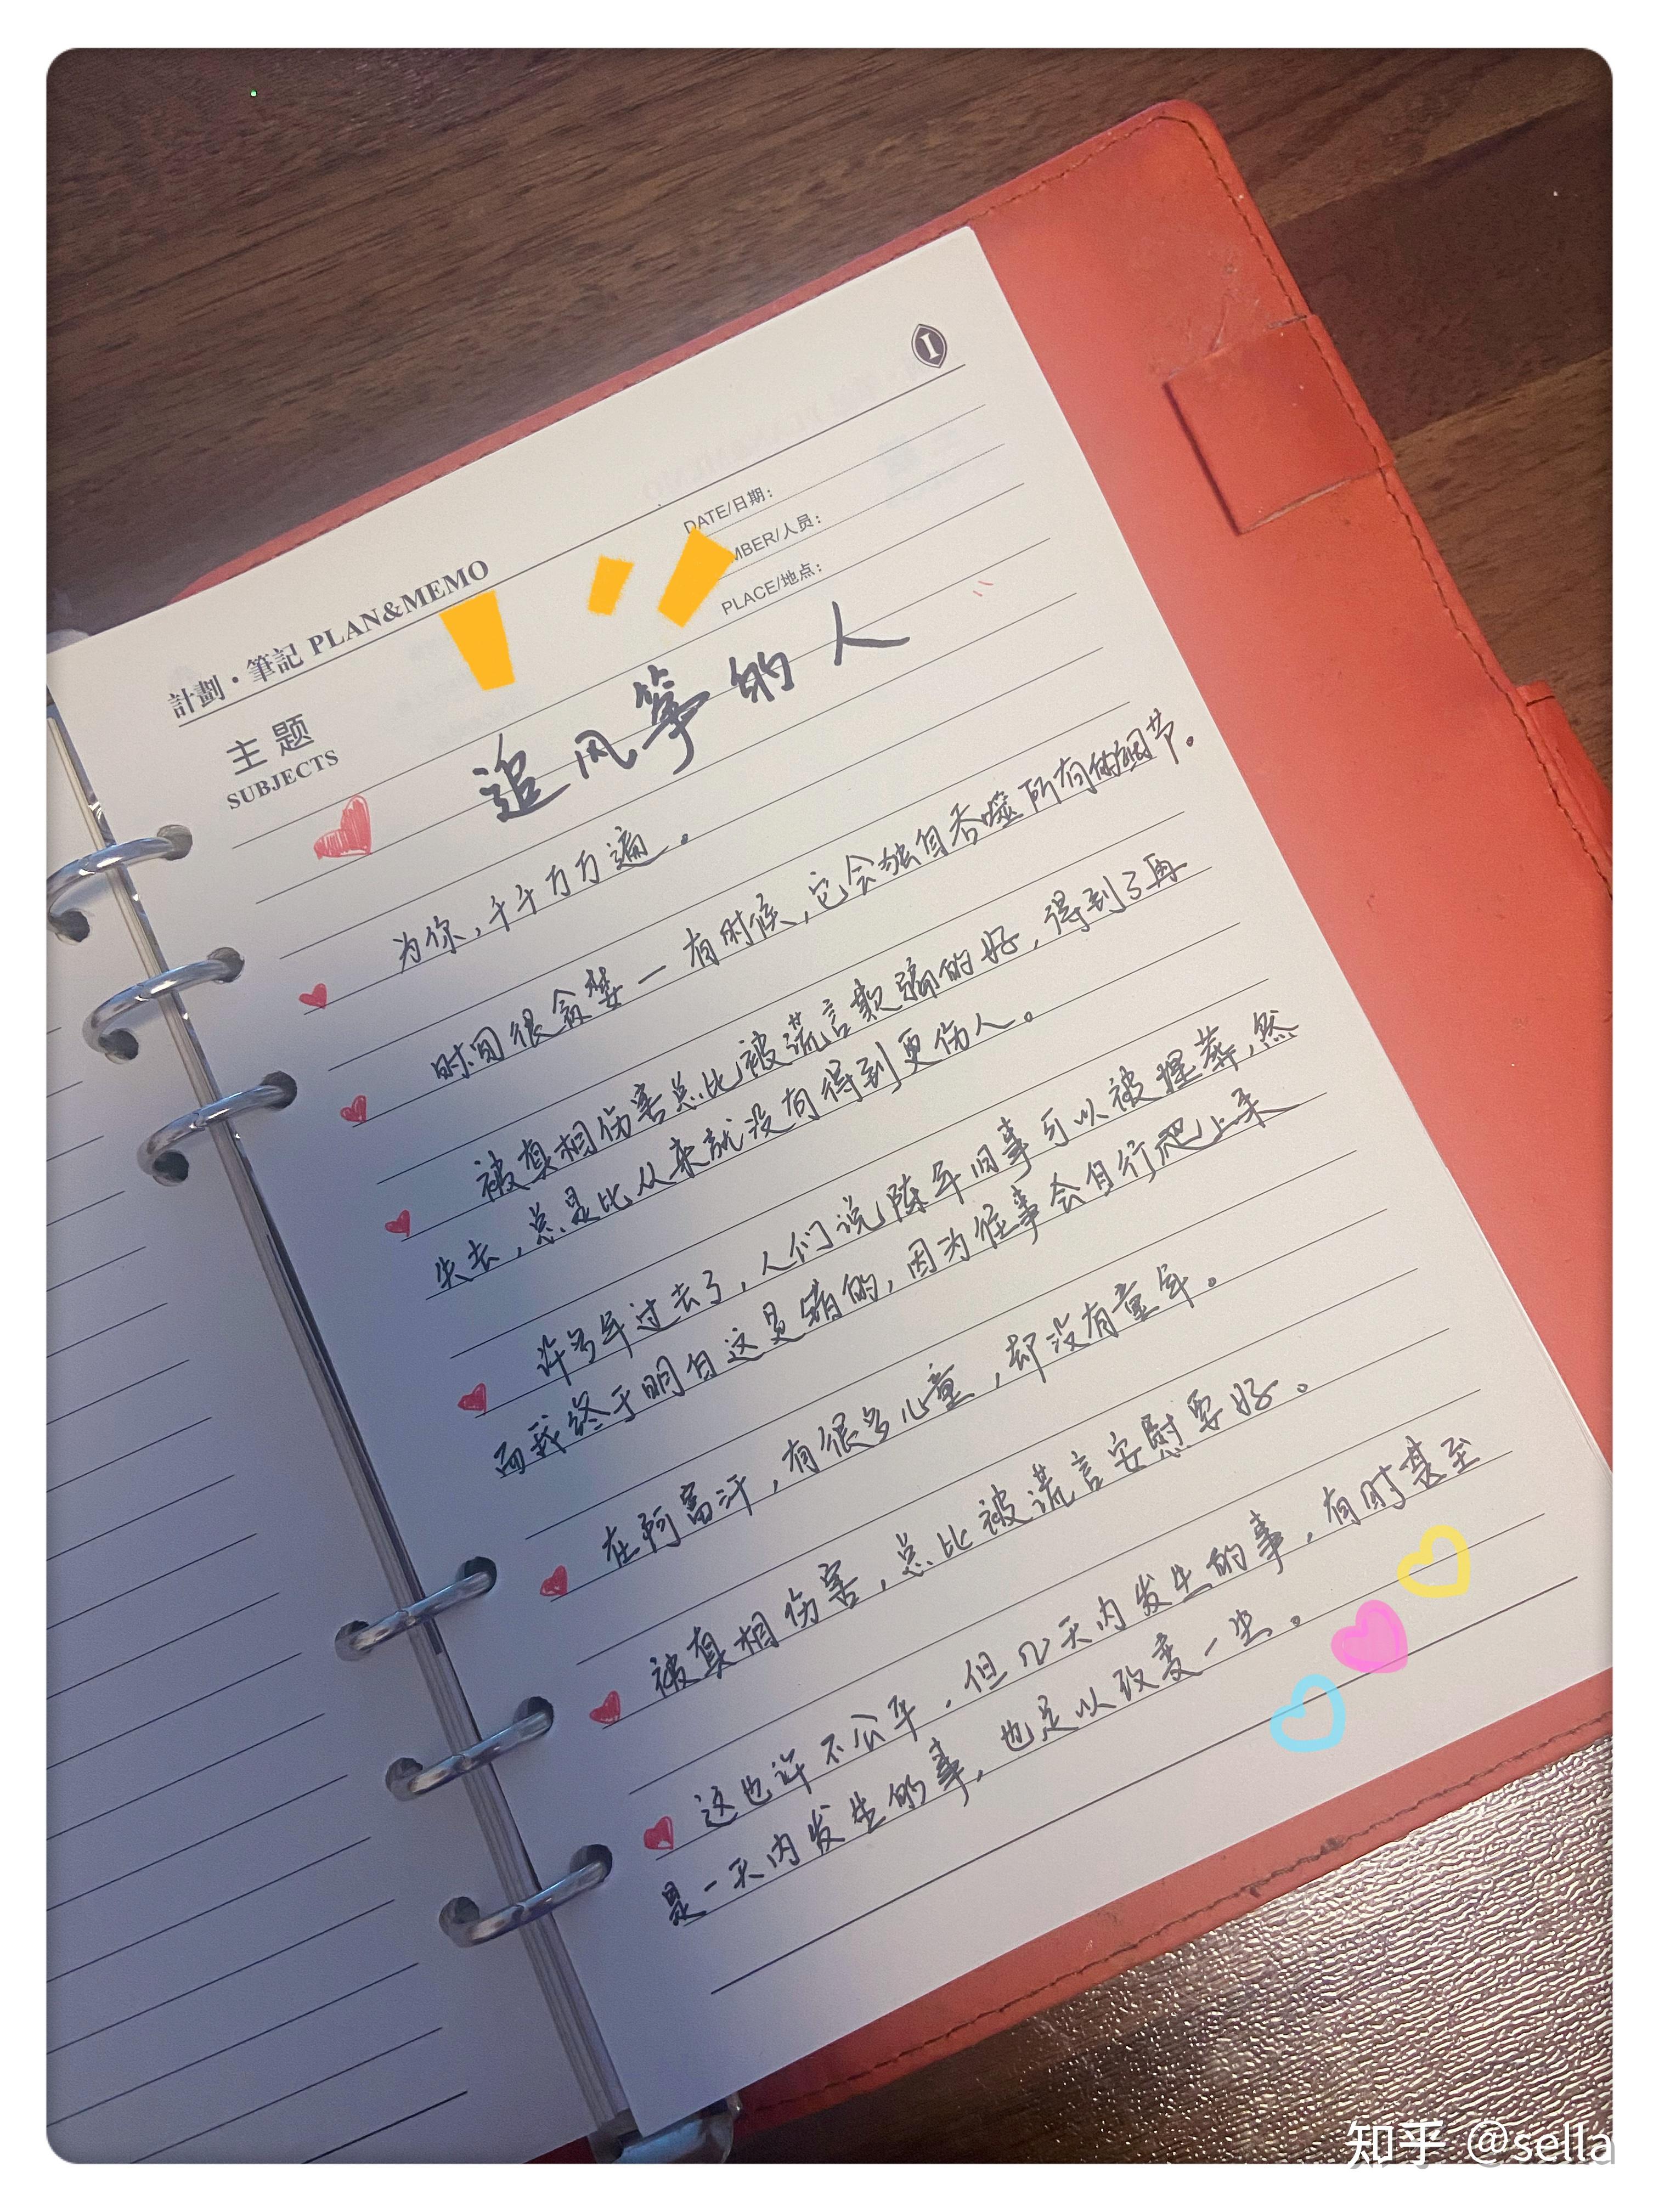 I
計劃·筆記 PLAN&MEMO
DATE/日期：
MBER/人员：
PLACE/地点：
主题
SUBJECTS
追风筝的人
为你，千千万万遍。
时间很贪婪一有时候，它会独自吞噬所有的细节。
被真相伤害总比被谎言欺骗的好，得到了再
失去，总是比从来就没有得到更伤人。
许多年过去了，人们说陈年旧事可以被埋葬，然
而我终于明白这是错的，因为往事会自行爬上来
在阿富汗，有很多儿童，却没有童年。
被真相伤害，总比被谎言安慰要好。
这也许不公平，但几天内发生的事，有时甚至
是一天内发生的事，也足以改变一生。
知乎 @sella